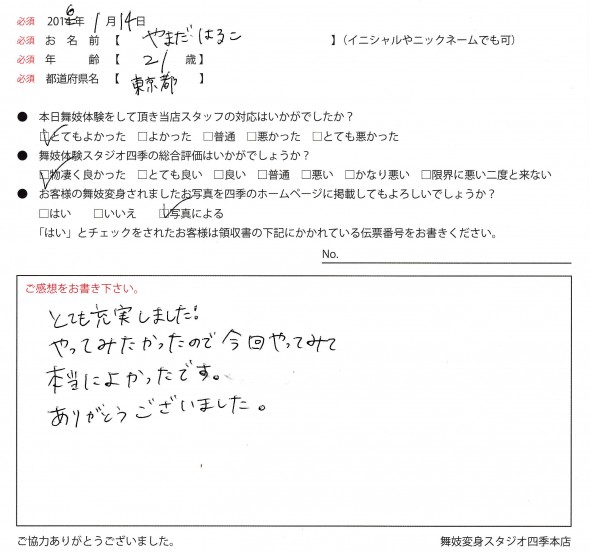 必須 2016年 1月14日
必須 お名前【 やまだ はるこ 】(イニシャルやニックネームでも可)
必須 年齢【 21 歳】
必須 都道府県名【 東京都 】
● 本日舞妓体験をして頂き当店スタッフの対応はいかがでしたか？
□とてもよかった □よかった □普通 □悪かった □とても悪かった
● 舞妓体験スタジオ四季の総合評価はいかがでしょうか？
□物凄く良かった □とても良い □良い □普通 □悪い □かなり悪い □限界に悪い二度と来ない
● お客様の舞妓変身されましたお写真を四季のホームページに掲載してもよろしいでしょうか？
□はい □いいえ □写真による
「はい」とチェックをされたお客様は領収書の下記にかかれている伝票番号をお書きください。
No.
ご感想をお書き下さい。
とても充実しました！
やってみたかったので今回やってみて
本当によかったです。
ありがとうございました。
ご協力ありがとうございました。 舞妓変身スタジオ四季本店